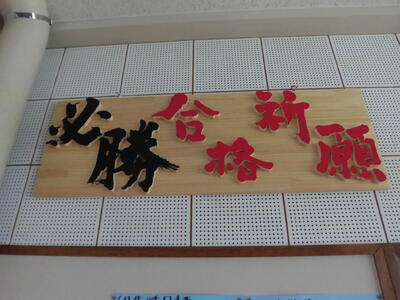 必勝 合格 祈願